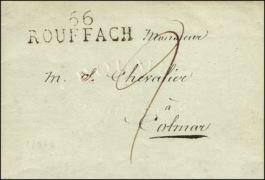 66
ROUFFACH Monsieur
M. S. Chevalier
à
Colmar